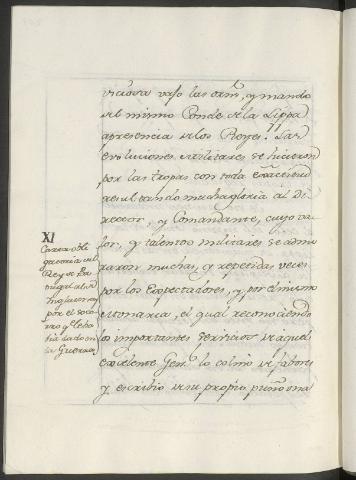 viciosa vajo las ordns, y mando
del mismo Conde de la Lippa
apresencia de los Reyes. Las
evoluciones militares se hicieron
por las tropas con toda exactitud
resultando mucha gloria al Di
rector, y Comandante, cuyo va
lor, y talentos militares se admi
raron muchas, y repetidas veces
por los Expectadores, y por el mismo
Monarca, el qual reconociendo
los importantes servicios de aquel
excelente Genl. lo colmó de fabores
y escribio de su propio puño una
XI
Carta
gratoria del
Rey de Por
tugal al
Ingles
por el soco
rro q. le ha
bia dado en
la Guerra